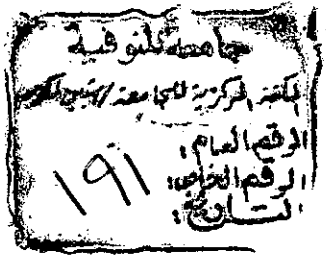 جامعة المنوفية
المكتبة المركزية للجامعة / شبين الكوم
الرقم العام :
الرقم الخاص : ١٩١
التاريخ :